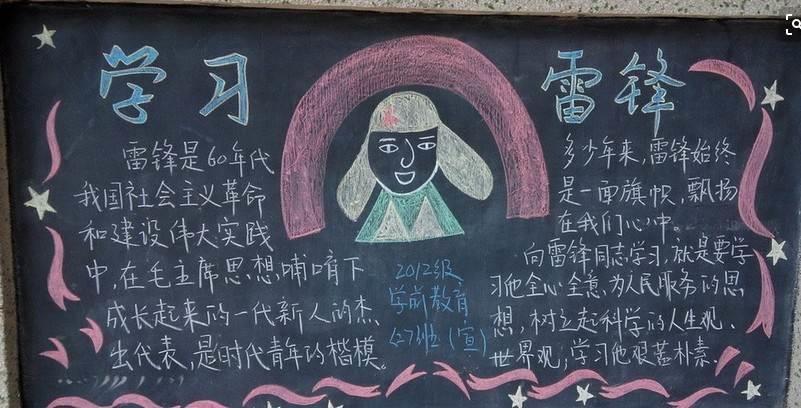 学习
雷锋是60年代
我国社会主义革命
和建设伟大实践
中,在毛主席思想哺育下
成长起来的一代新人的杰
出代表,是时代青年的楷模。
2012级
学前教育
6-7班(宣)
雷锋
多少年来,雷锋始终
是一面旗帜,飘扬
在我们心中。
向雷锋同志学习,就是要学
习他全心全意,为人民服务的思
想,树立起科学的人生观、
世界观,学习他艰苦朴素.